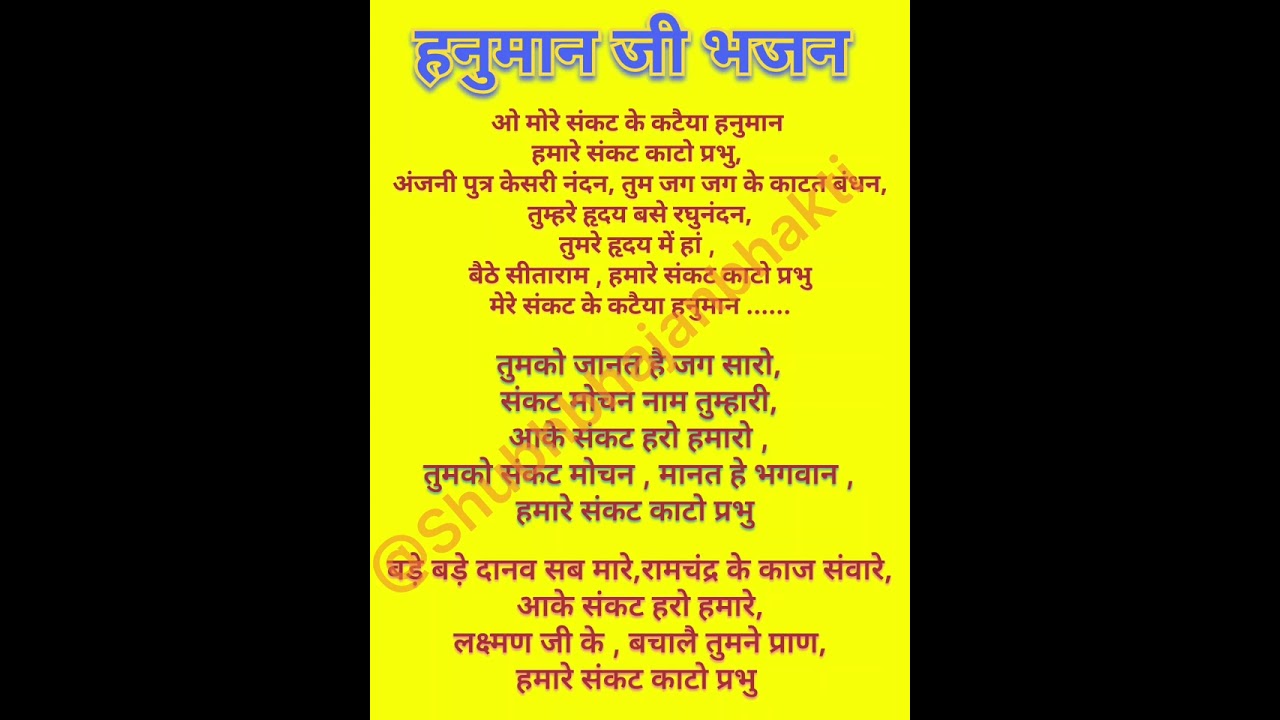 हनुमान जी भजन
ओ मोरे संकट के कटैया हनुमान
हमारे संकट काटो प्रभु,
अंजनी पुत्र केसरी नंदन, तुम जग जग के काटत बंधन,
तुम्हरे हृदय बसे रघुनंदन,
तुमरे हृदय में हां ,
बैठे सीताराम , हमारे संकट काटो प्रभु
मेरे संकट के कटैया हनुमान ......
तुमको जानत है जग सारो,
संकट मोचन नाम तुम्हारी,
आके संकट हरो हमारो ,
तुमको संकट मोचन , मानत हे भगवान ,
हमारे संकट काटो प्रभु
बड़े बड़े दानव सब मारे,रामचंद्र के काज संवारे,
आके संकट हरो हमारे,
लक्ष्मण जी के , बचालै तुमने प्राण,
हमारे संकट काटो प्रभु
@Shubhbhajanbhakti